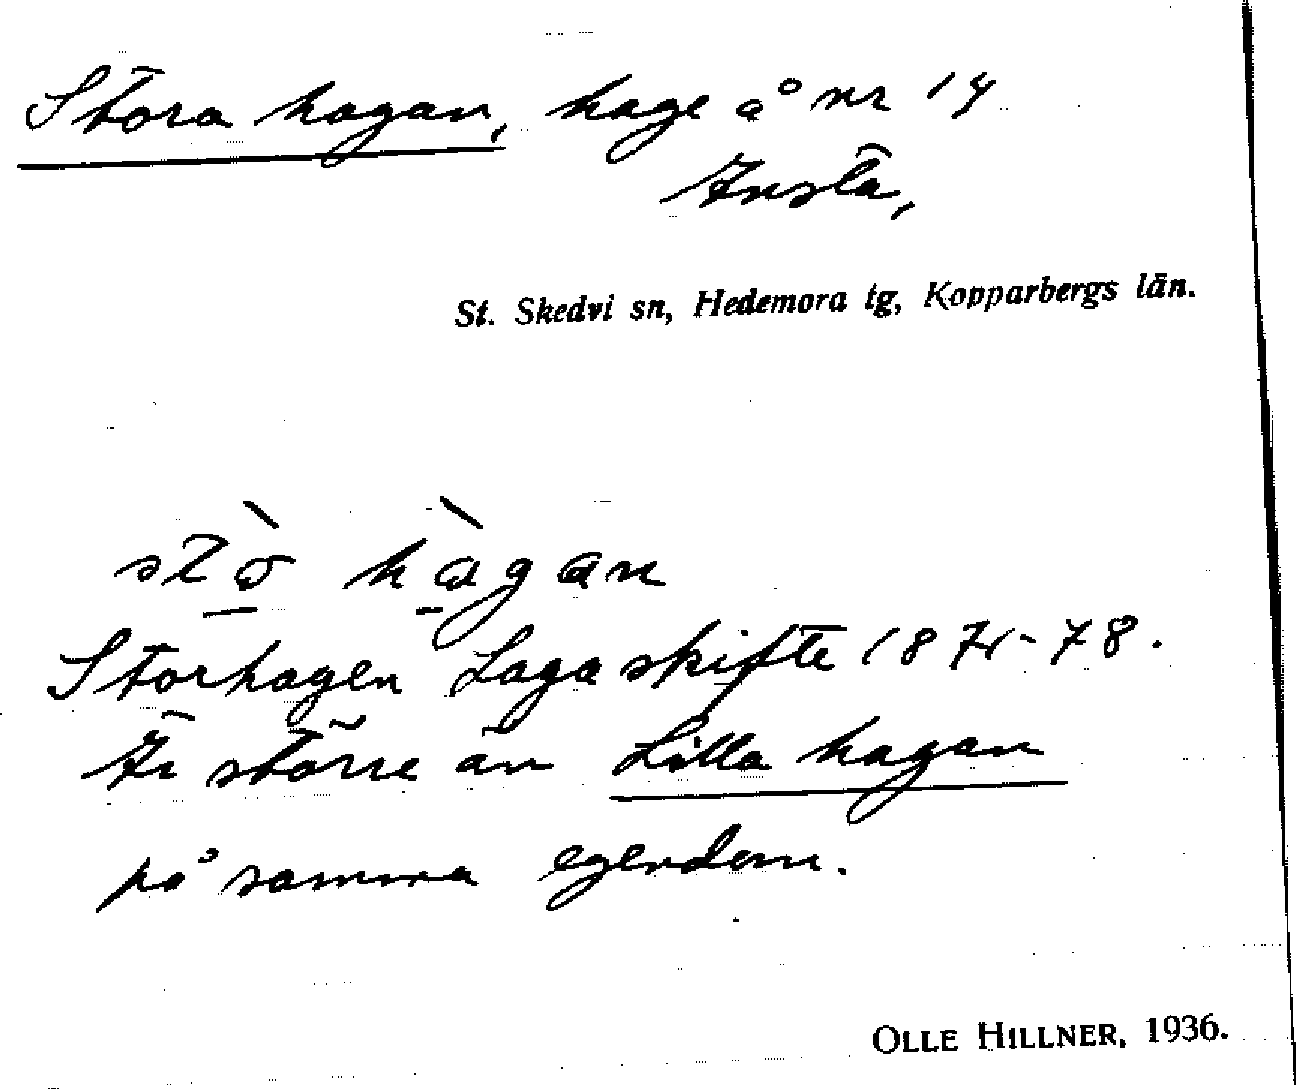 Stora hagan, hage å nr 14
Insta,
St. Skedvi sn, Hedemora tg, Kopparbergs län.
stò hàgan
Storhagen Laga skifte 1871-78.
Är större än Lilla hagan
på samma egendom.
OLLE HILLNER, 1936.